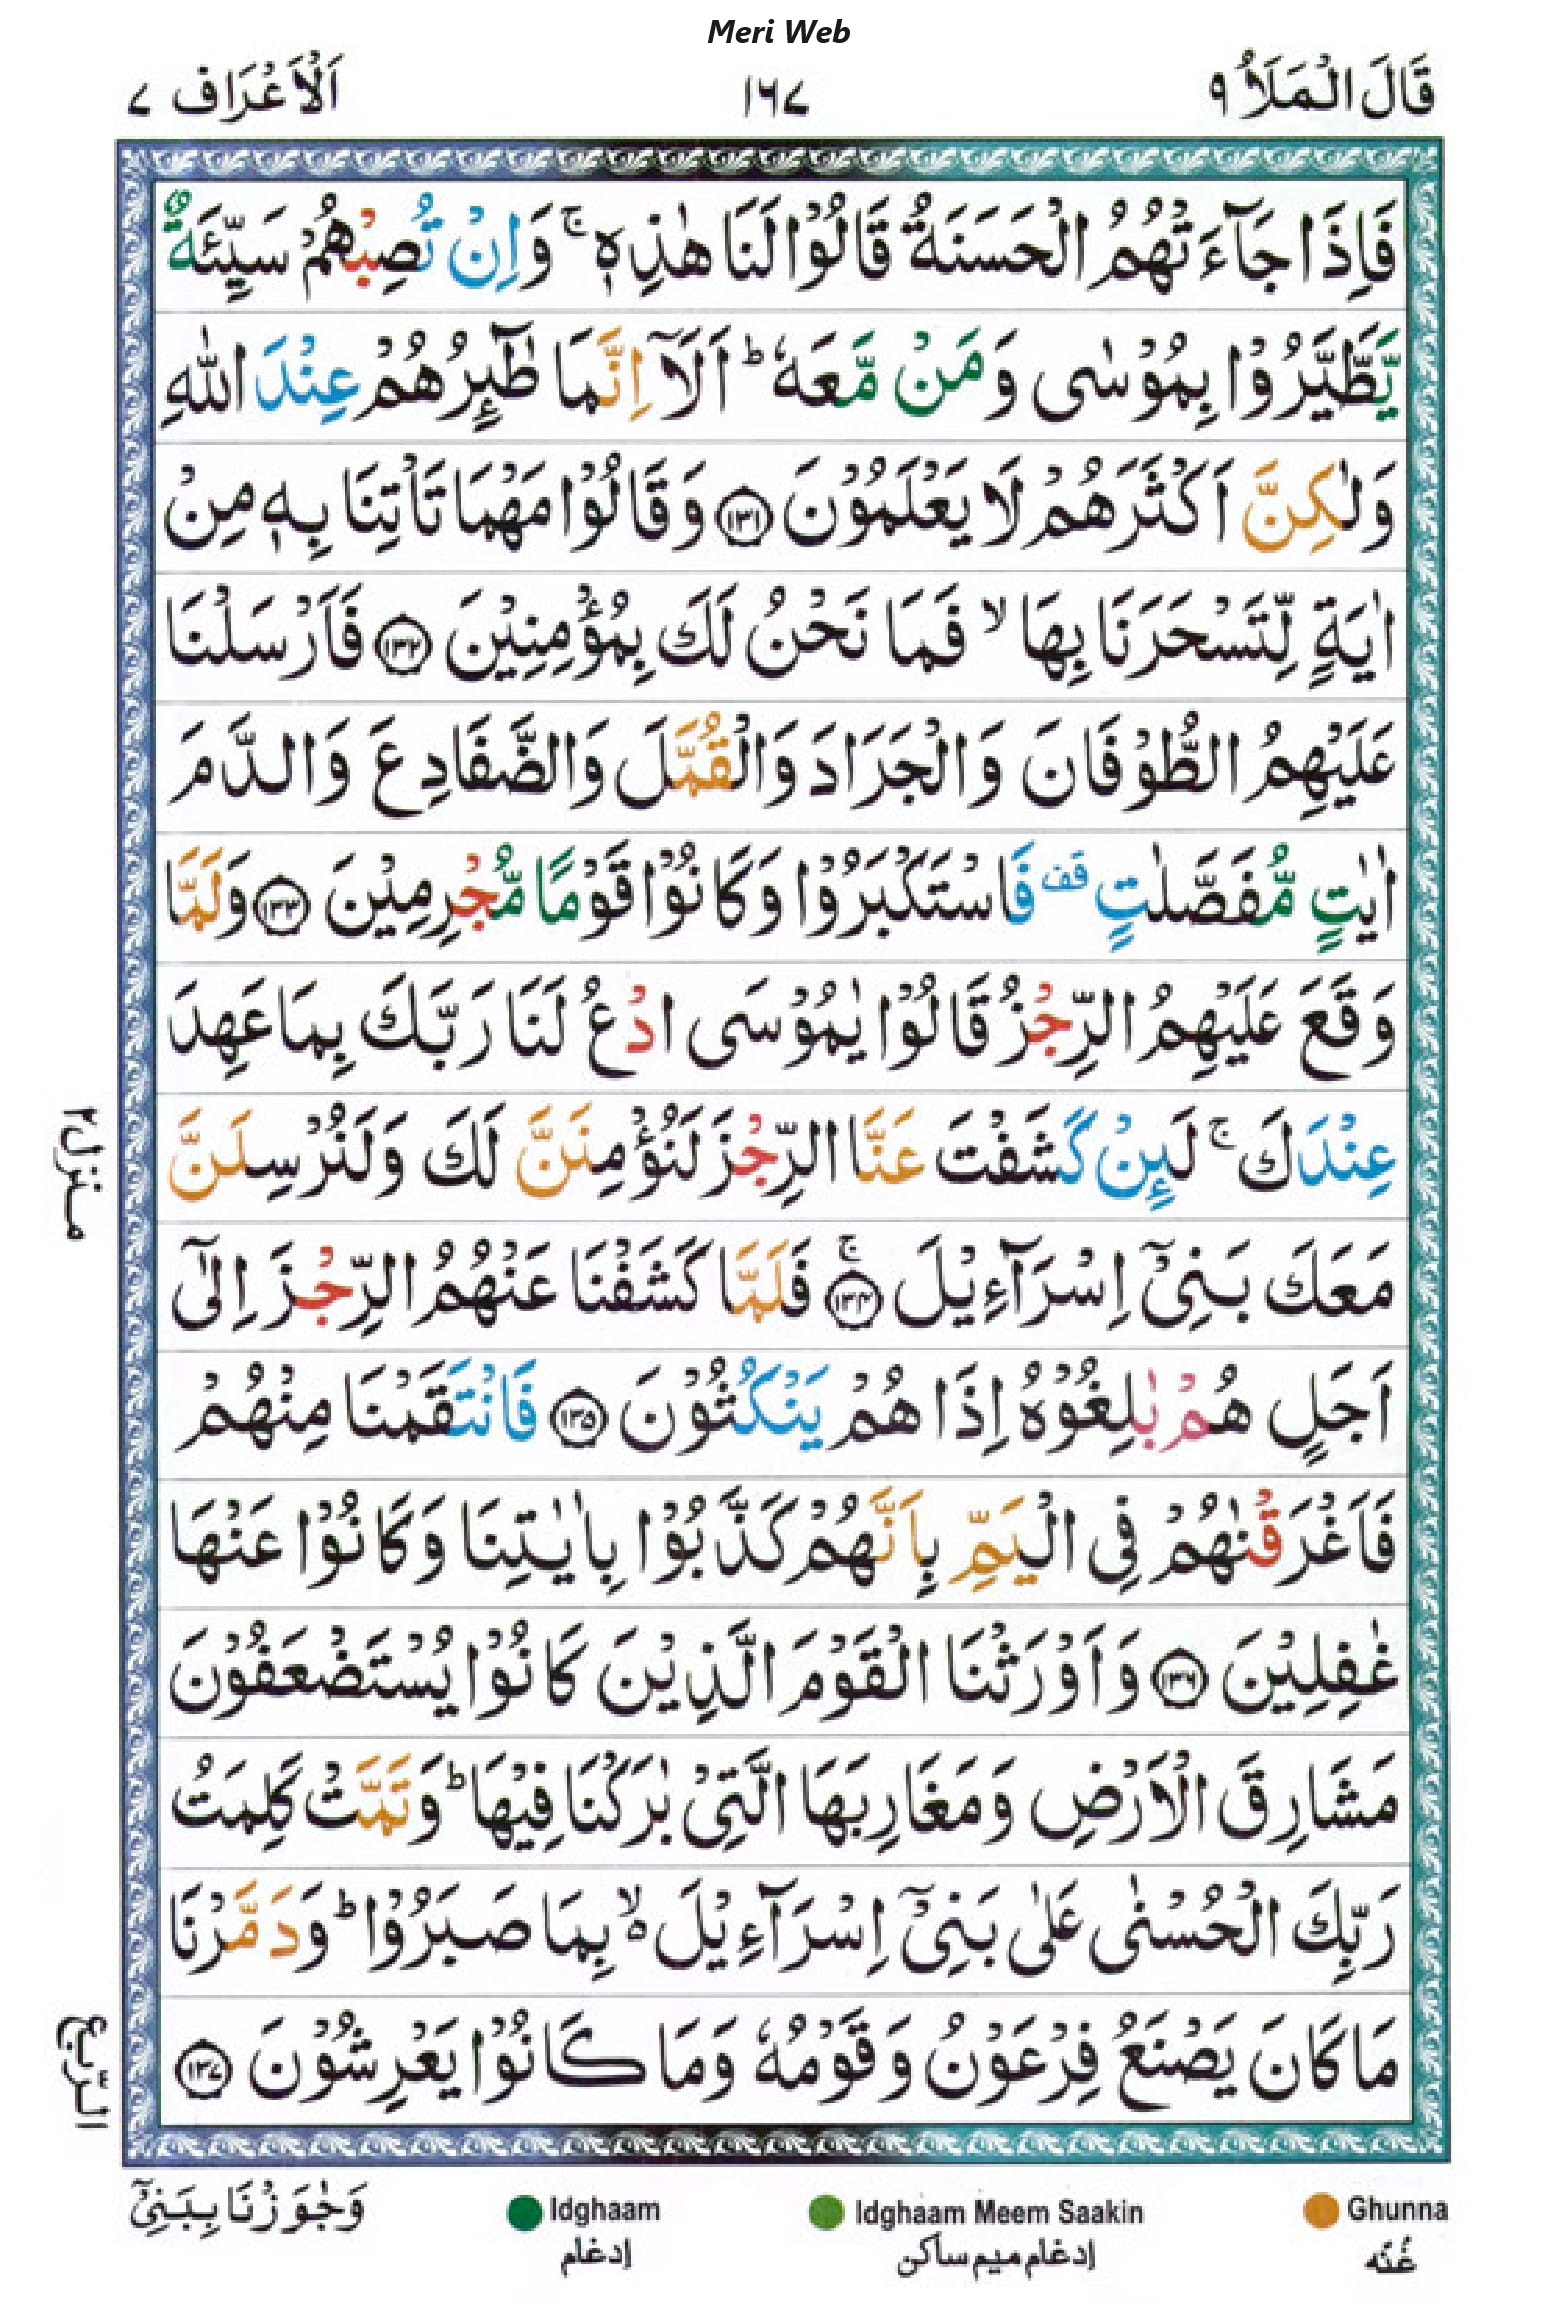 Meri Web
قَالَ الْمَلَاُ ٩
١٦٧
اَلْاَعْرَاف ٧
فَاِذَا جَآءَتْهُمُ الْحَسَنَةُ قَالُوْا لَنَا هٰذِهٖ ۚ وَاِنْ تُصِبْهُمْ سَيِّئَةٌ
يَّطَّيَّرُوْا بِمُوْسٰى وَمَنْ مَّعَهٗ ؕ اَلَاۤ اِنَّمَا طٰٓئِرُهُمْ عِنْدَ اللّٰهِ
وَلٰكِنَّ اَكْثَرَهُمْ لَا يَعْلَمُوْنَ ۝١٣١ وَقَالُوْا مَهْمَا تَاْتِنَا بِهٖ مِنْ
اٰيَةٍ لِّتَسْحَرَنَا بِهَا ۙ فَمَا نَحْنُ لَكَ بِمُؤْمِنِيْنَ ۝١٣٢ فَاَرْسَلْنَا
عَلَيْهِمُ الطُّوْفَانَ وَالْجَرَادَ وَالْقُمَّلَ وَالضَّفَادِعَ وَالدَّمَ
اٰيٰتٍ مُّفَصَّلٰتٍ قف فَاسْتَكْبَرُوْا وَكَانُوْا قَوْمًا مُّجْرِمِيْنَ ۝١٣٣ وَلَمَّا
وَقَعَ عَلَيْهِمُ الرِّجْزُ قَالُوْا يٰمُوْسَى ادْعُ لَنَا رَبَّكَ بِمَا عَهِدَ
عِنْدَكَ ۚ لَئِنْ كَشَفْتَ عَنَّا الرِّجْزَ لَنُؤْمِنَنَّ لَكَ وَلَنُرْسِلَنَّ
مَعَكَ بَنِىْۤ اِسْرَآءِيْلَ ۝١٣٤ۚ فَلَمَّا كَشَفْنَا عَنْهُمُ الرِّجْزَ اِلٰٓى
اَجَلٍ هُمْ بٰلِغُوْهُ اِذَا هُمْ يَنْكُثُوْنَ ۝١٣٥ فَانْتَقَمْنَا مِنْهُمْ
فَاَغْرَقْنٰهُمْ فِى الْيَمِّ بِاَنَّهُمْ كَذَّبُوْا بِاٰيٰتِنَا وَكَانُوْا عَنْهَا
غٰفِلِيْنَ ۝١٣٦ وَاَوْرَثْنَا الْقَوْمَ الَّذِيْنَ كَانُوْا يُسْتَضْعَفُوْنَ
مَشَارِقَ الْاَرْضِ وَمَغَارِبَهَا الَّتِىْ بٰرَكْنَا فِيْهَا ؕ وَتَمَّتْ كَلِمَتُ
رَبِّكَ الْحُسْنٰى عَلٰى بَنِىْۤ اِسْرَآءِيْلَ ۙ۬ بِمَا صَبَرُوْا ؕ وَدَمَّرْنَا
مَا كَانَ يَصْنَعُ فِرْعَوْنُ وَقَوْمُهٗ وَمَا كَانُوْا يَعْرِشُوْنَ ۝١٣٧
منزل ٢
الرّبع
وَجٰوَزْنَا بِبَنِىْۤ
Idghaam
إدغام
Idghaam Meem Saakin
إدغام ميم ساكن
Ghunna
غُنّه